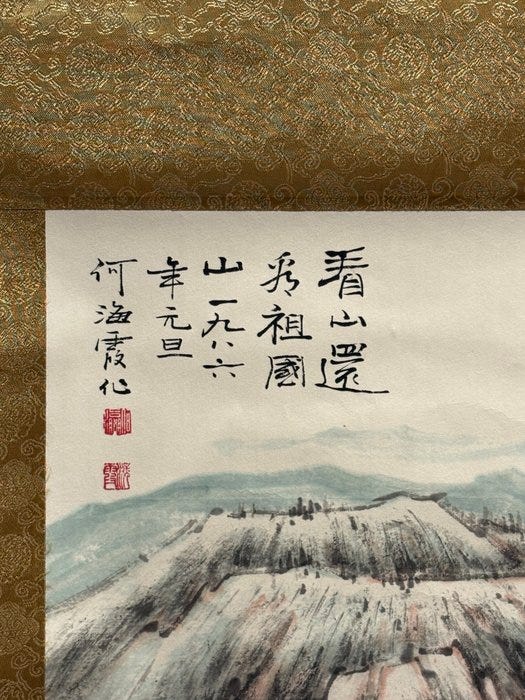 看山還
看祖國
山一九八六
年元旦
何海霞作